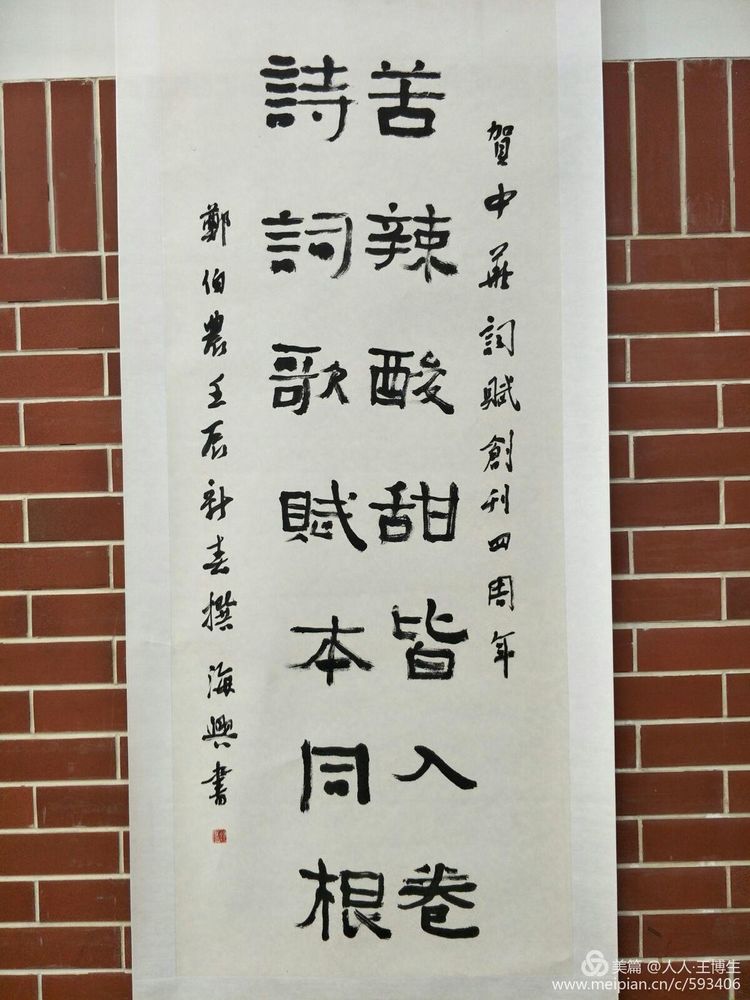 賀中華詞賦創刊四周年
苦辣酸甜皆入卷
詩詞歌賦本同根
鄭伯農壬辰新春撰 海興書
美篇 @人人·王博生
www.meipian.cn/c/593406